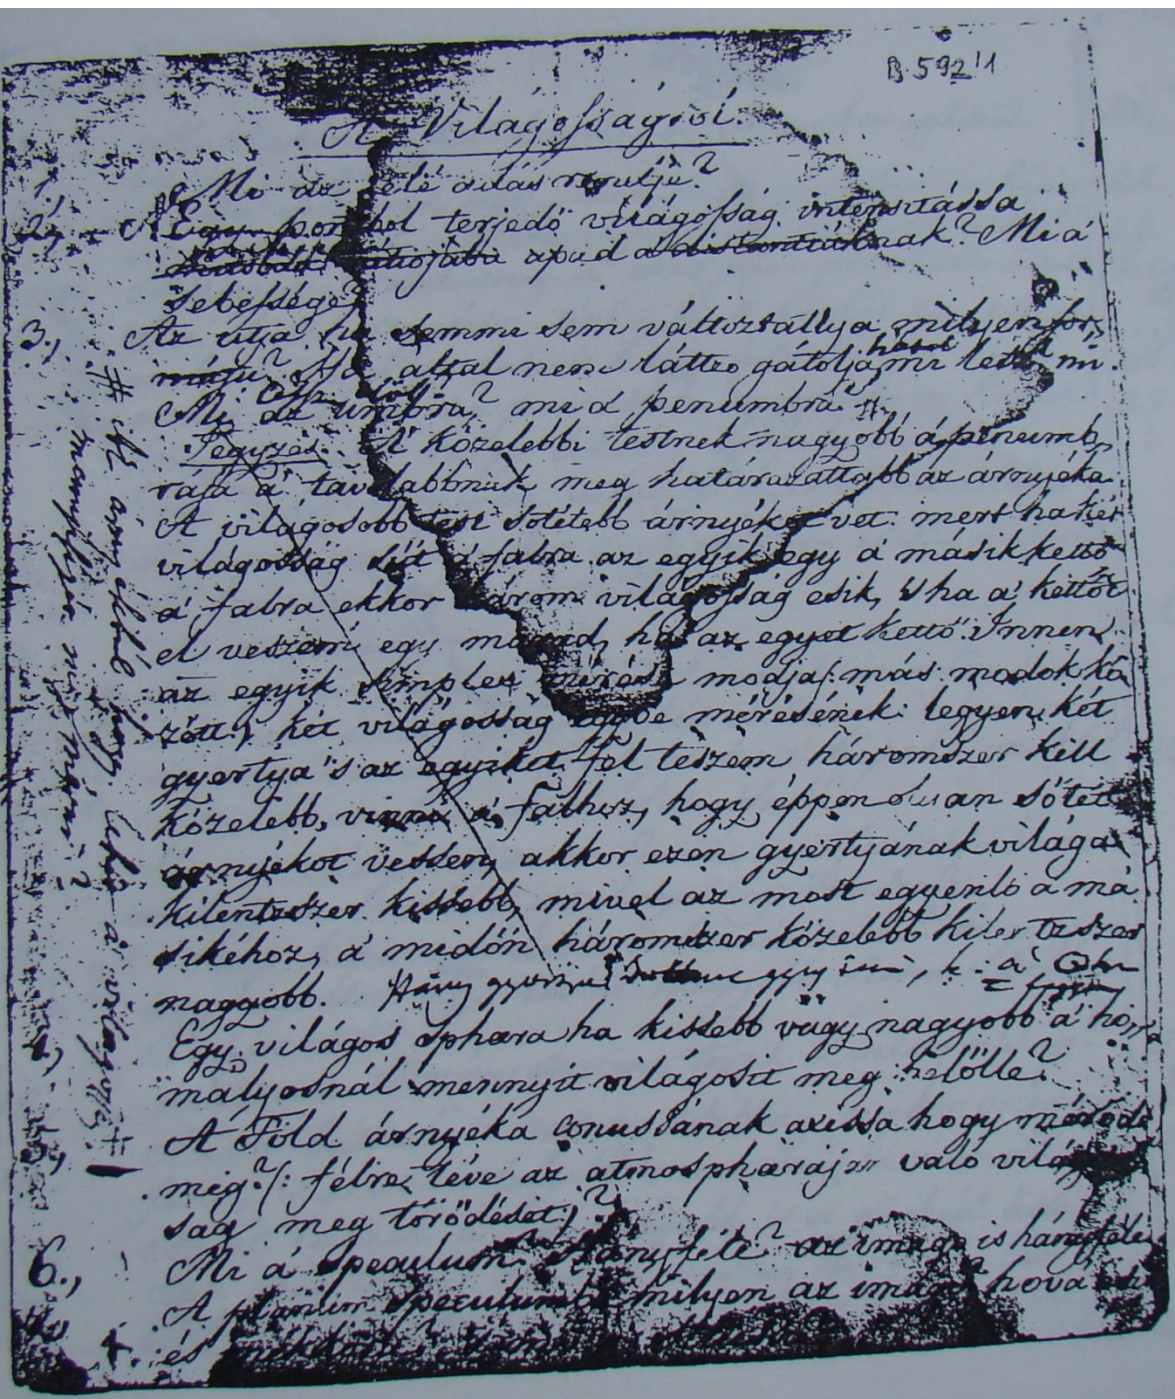 B 592/1
A Világoſságról.
1, Mi az felé adás rendje?
2, A Egy pontból terjedő világoſság intensitássa
apad a distantiáknak? Mi a'
sebeſsége?
3., Az utja ha semmi sem változtallya milyen for,
mája? Ha által nem látto gátolja mi lesz mi.
Mi az umbra? mi a' penumbra? #
Jegyzés. A' közelebbi testnek nagyobb á penumb,
rája a' távolabbnak meg határozattabb az árnyéka.
A világosobb test sötétebb árnyékot vet: mert ha két
világosság süt a' falra az egyik egy a' másik kettő
a' falra ekkor három világoſság esik, 's ha a' kettőt
el veszem egy marad, ha az egyet kettő. Innen
az egyik simplex mérése modja /: más modok kö
zött:/ két világosság egybe mérésének: legyen két
gyertya 's az egyiket fel teszem háromszor kell
közelebb, vinni a' falhoz, hogy éppen olyan sötét
árnyékot vessen, akkor ezen gyertyának világa
kilentzszer kissebb, mivel az most egyenlő a má
sikéhoz, a' midőn háromszor közelebb kilentzszer
nagyobb. Hány gyertya
4, Egy világos sphæra ha kissebb vagy nagyobb a' ho,
malyosnál mennyit világosit meg belőlle?
5, A' Föld árnyéka conussának axissa hogy mérődik
meg? /: félre téve az atmosphæráján való világos
ság meg törődését:/ ?
6., Mi a' speculum? Hányféle? az imago is hányféle?
A planum speculumba milyen az imago hová esik
és
# Az árnyékból hogy a' világosság
mennyisége mérni? #